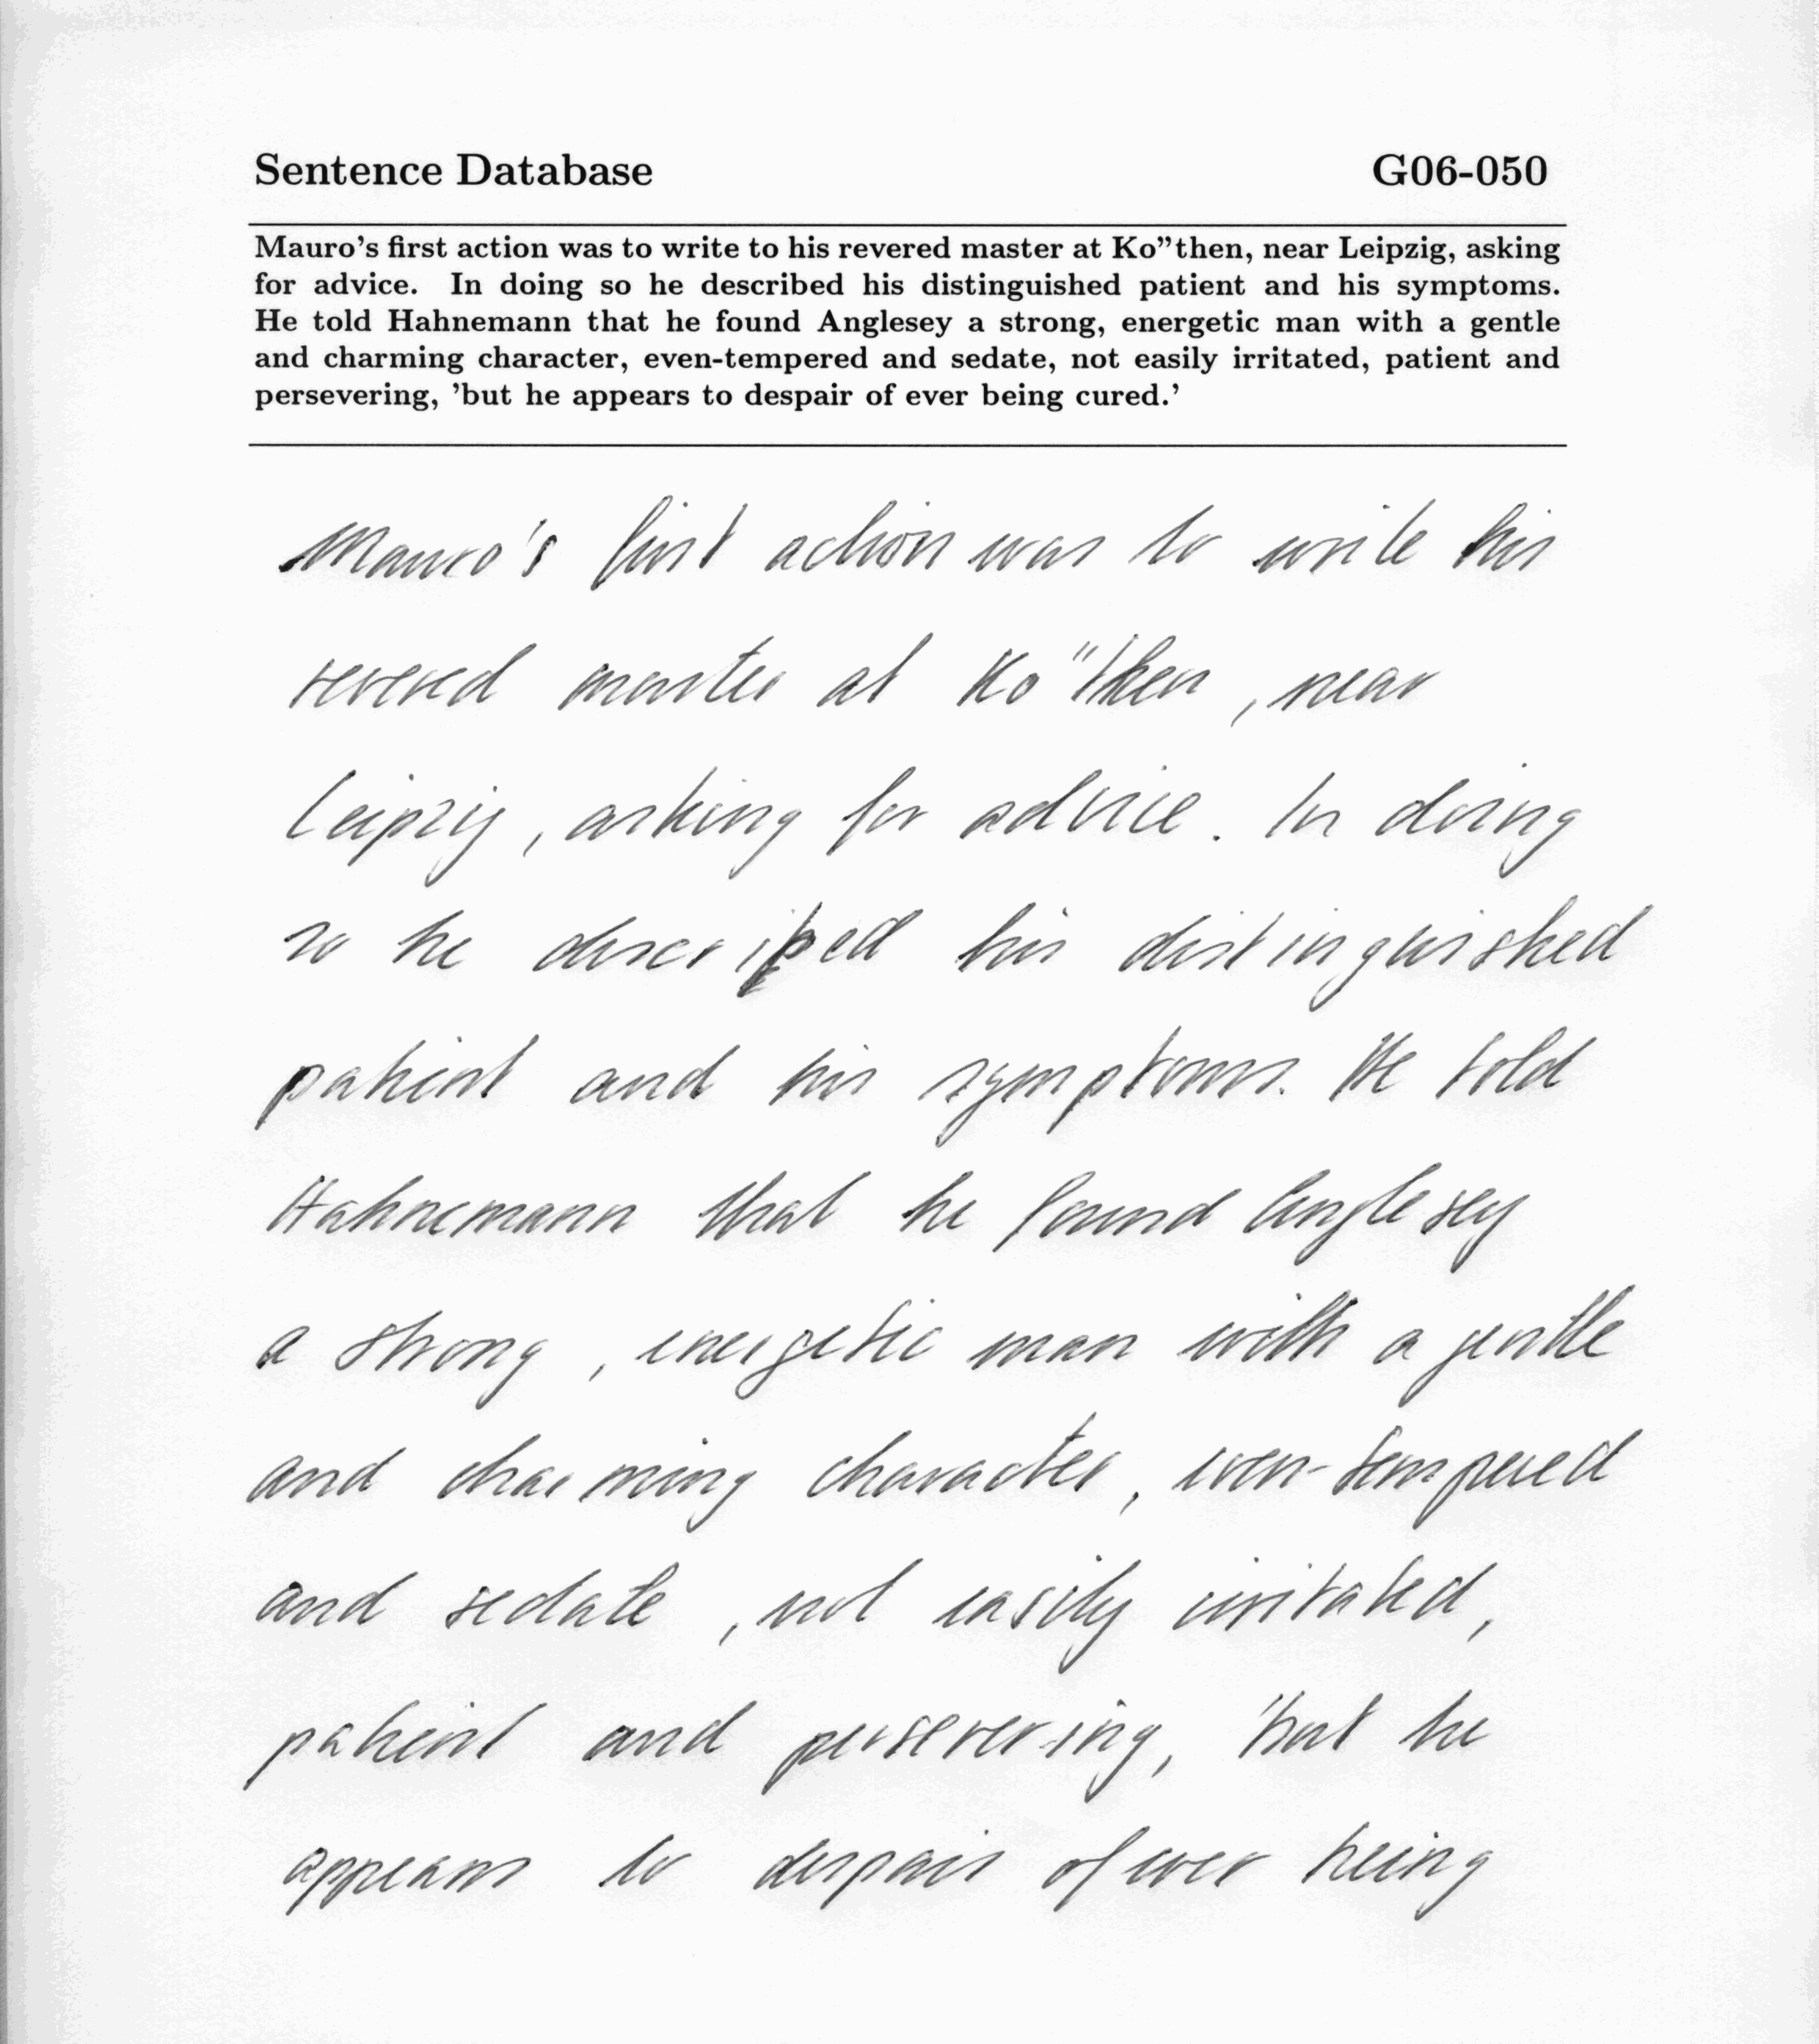 Sentence Database G06-050
Mauro's first action was to write to his revered master at Ko"then, near Leipzig, asking
for advice. In doing so he described his distinguished patient and his symptoms.
He told Hahnemann that he found Anglesey a strong, energetic man with a gentle
and charming character, even-tempered and sedate, not easily irritated, patient and
persevering, 'but he appears to despair of ever being cured.'
Mauro's first action was to write his
revered master at Ko"then, near
Leipzig, asking for advice. In doing
so he descriped his distinguished
patient and his symptoms. He told
Hahnemann that he found Anglesey
a strong, energetic man with a gentle
and charming character, even-tempered
and sedate, not easily irritated,
patient and persevering, 'but he
appears to despair of ever being